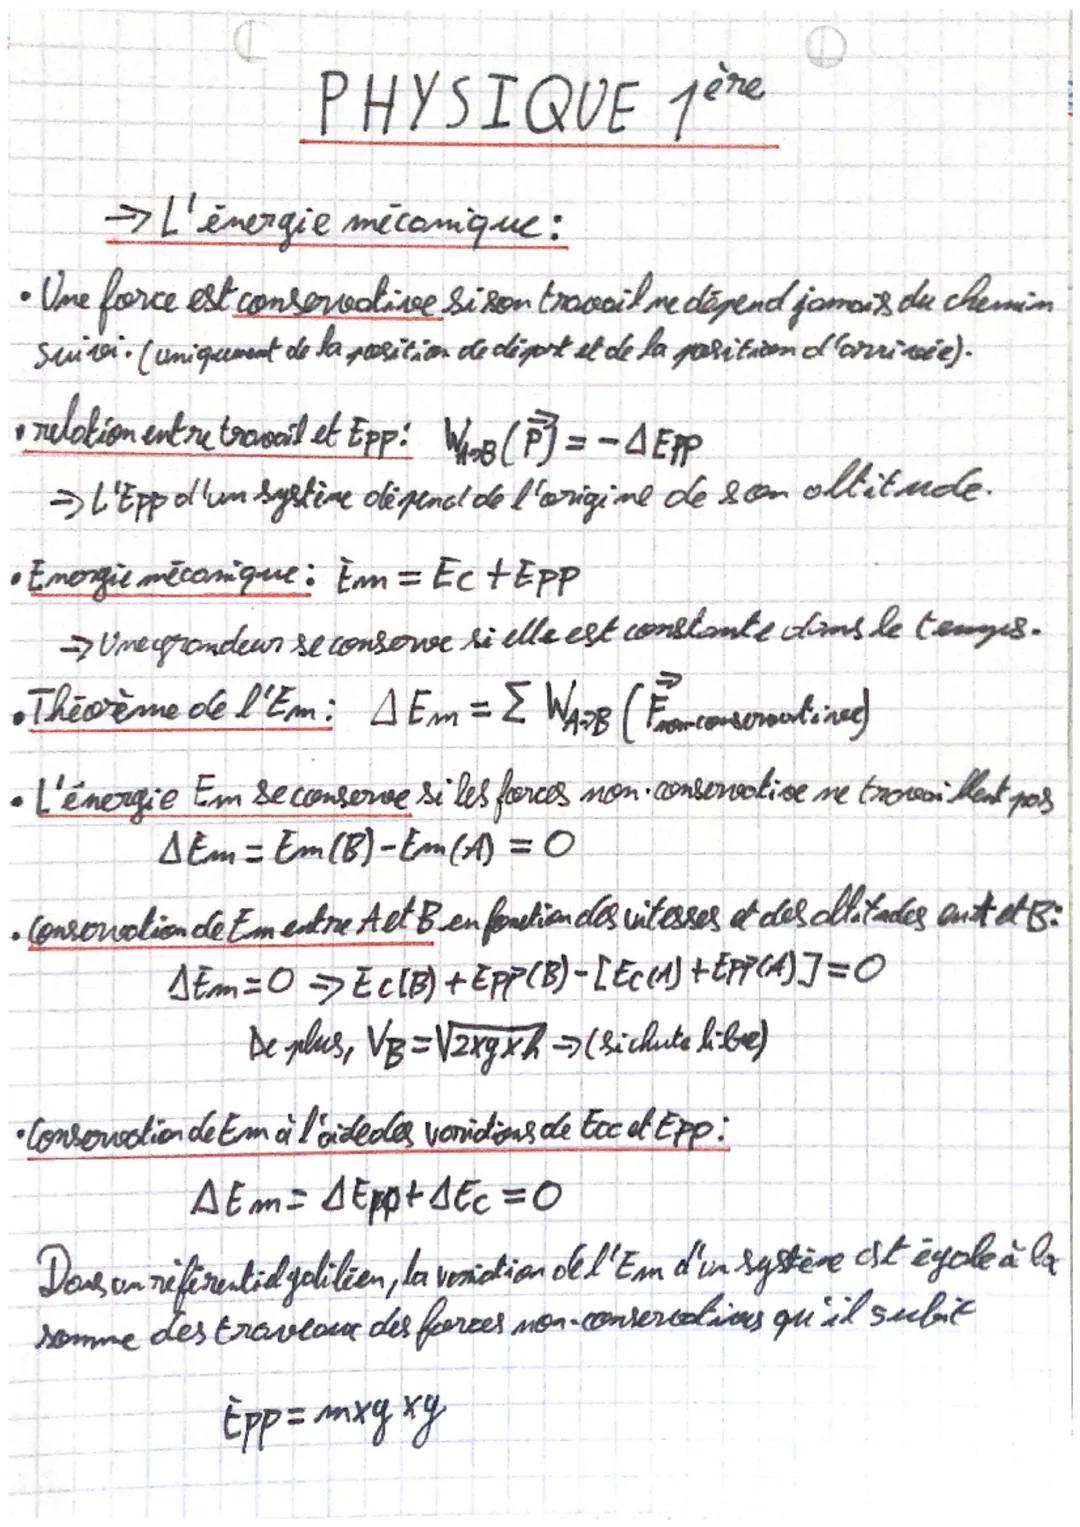 PHYSIQUE 1ère
⇒ L'énergie mécanique :
• Une force est conservative si son travail ne dépend jamais du chemin
suivi. (uniquement de la position de départ et de la position d'arrivée).
• relation entre travail et Epp : W_{A→B} (\vec{P}) = - Δ Epp
⇒ L'Epp d'un système dépend de l'origine de son altitude.
• Energie mécanique : Em = Ec + Epp
⇒ Une grandeur se conserve si elle est constante dans le temps.
• Théorème de l'Em : Δ Em = Σ W_{A→B} (\vec{F}_{non conservatives})
• L'énergie Em se conserve si les forces non-conservative ne travaillent pas
Δ Em = Em (B) - Em (A) = 0
• Conservation de Em entre A et B en fonction des vitesses et des altitudes en A et B :
Δ Em = 0 ⇒ Ec (B) + Epp (B) - [Ec (A) + Epp (A)] = 0
De plus, V_B = √(2xgxh) ⇒ (si chute libre)
• Conservation de Em à l'aide des variations de Ecc et Epp :
Δ Em = Δ Epp + Δ Ec = 0
Dans un référentiel galiléen, la variation de l'Em d'un système est égale à la
somme des travaux des forces non-conservatives qu'il subit
Epp = mxgxy